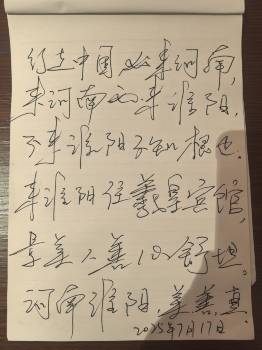 行走中国必来河南,
来河南必来淮阳,
不来淮阳不知根也.
来淮阳住羲皇宾馆,
景美人善心舒坦。
河南淮阳,美善真.
2025年7月17日